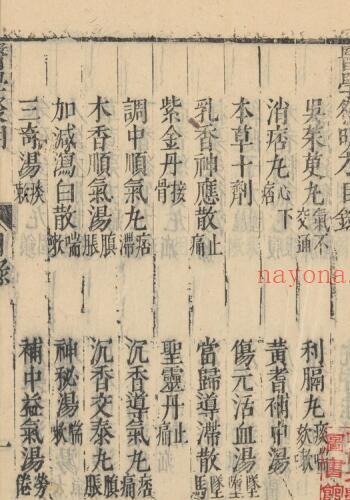 醫學發明方目錄
吳茱萸丸 氣不交通 利膈丸 痰嗽
消痞丸 心下痞 黃耆補中湯
本草十劑 傷元活血湯 墮墜
乳香神應散 止痛 當歸導滯散 墜馬
紫金丹 接骨 聖靈丹 止
調中順氣丸 痞滯 沉香導氣丸
木香順氣湯 䐜脹 沉香交泰丸 䐜脹
加減瀉白散 喘嗽 神秘湯 喘嗽
三奇湯 痰嗽 補中益氣湯 勞倦
醫學發明 目錄 一
nayona.
圖書館